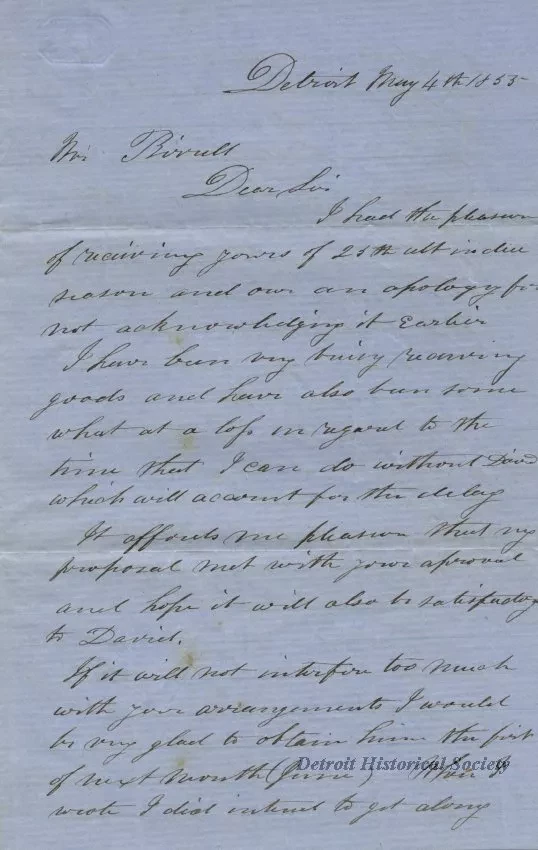 Detroit May 4th 1855
Mr Birrell
Dear Sir
I had the pleasure
of receiving yours of 25th ult in due
season and owe an apology for
not acknowledging it Earlier
I have been very busy receiving
goods and have also been some
what at a loss in regard to the
time that I can do without David
which will account for the delay
It affords me pleasure that my
proposal met with your aproval
and hope it will also be satisfactory
to David.
If it will not interfere too much
with your arrangements I would
be very glad to obtain him the first
of next month (June) When I
Detroit Historical Society
wrote I did intend to get along